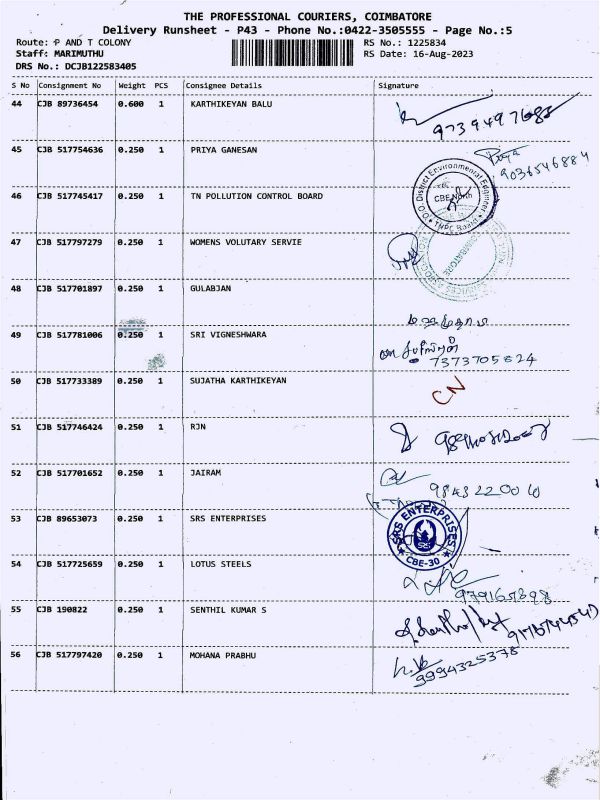 THE PROFESSIONAL COURIERS, COIMBATORE
Delivery Runsheet - P43 - Phone No.:0422-3505555 - Page No.:5
Route: P AND T COLONY RS No.: 1225834
Staff: MARIMUTHU RS Date: 16-Aug-2023
DRS No.: DCJB122583405
S No Consignment No Weight PCS Consignee Details Signature
44 CJB 89736454 0.600 1 KARTHIKEYAN BALU
45 CJB 517754636 0.250 1 PRIYA GANESAN Priya
9036546884
46 CJB 517745417 0.250 1 TN POLLUTION CONTROL BOARD
O/O. District Environmental Engineer
CBE North
TNPC Board
47 CJB 517797279 0.250 1 WOMENS VOLUTARY SERVIE
COIMBATORE
48 CJB 517701897 0.250 1 GULABJAN
49 CJB 517781006 0.250 1 SRI VIGNESHWARA
7373705824
50 CJB 517733389 0.250 1 SUJATHA KARTHIKEYAN CN
51 CJB 517746424 0.250 1 RJN
52 CJB 517701652 0.250 1 JAIRAM
53 CJB 89653073 0.250 1 SRS ENTERPRISES
SRS ENTERPRISES
CBE-30
54 CJB 517725659 0.250 1 LOTUS STEELS
55 CJB 190822 0.250 1 SENTHIL KUMAR S
56 CJB 517797420 0.250 1 MOHANA PRABHU
9994325378